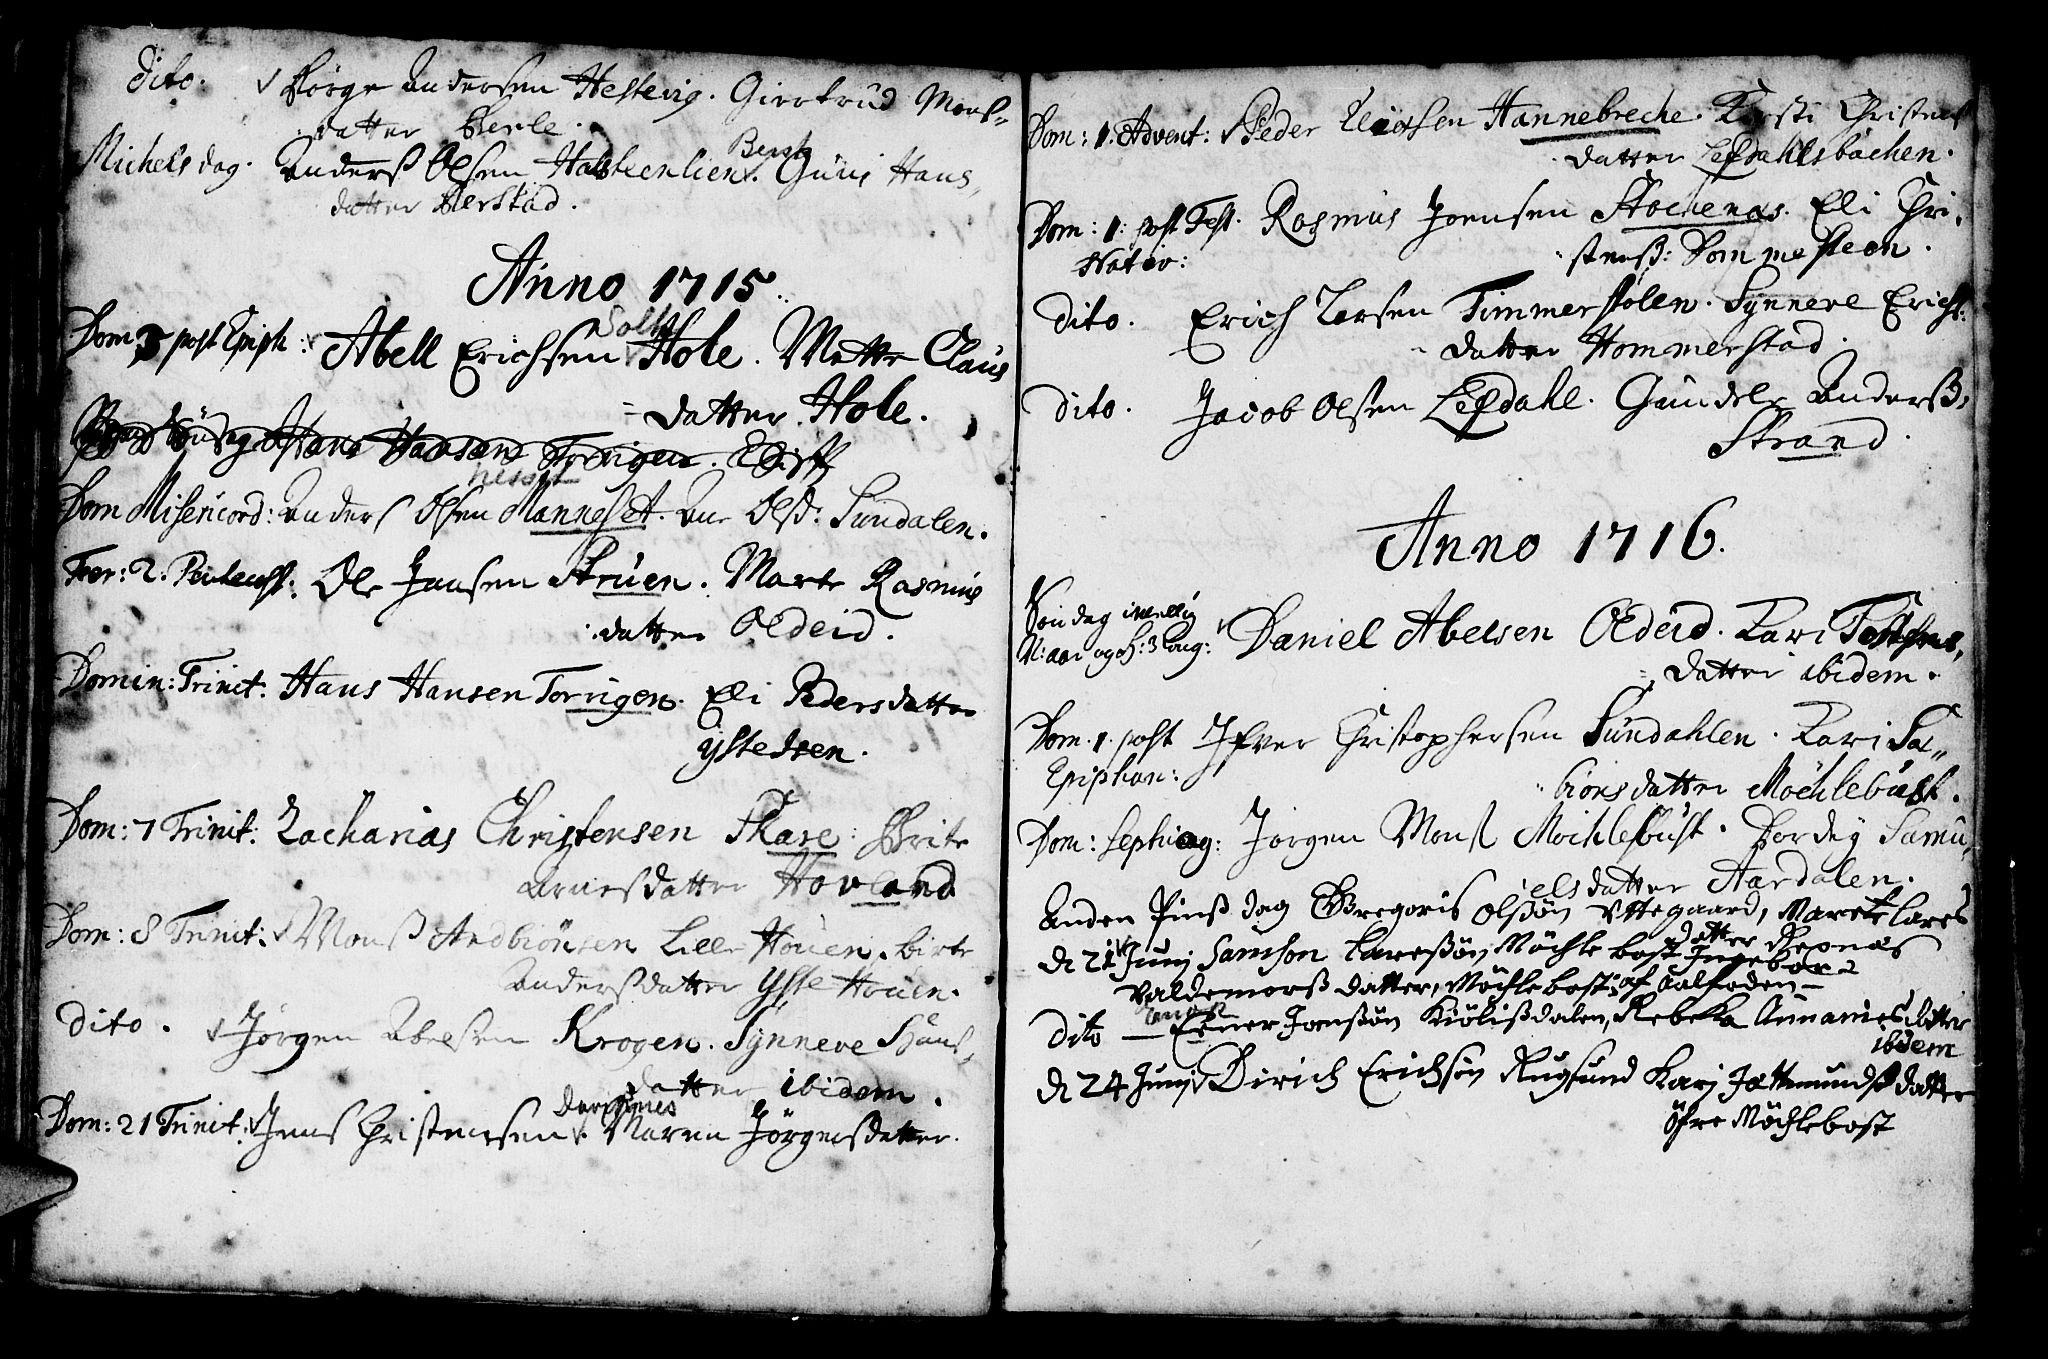 Dito. Børge Andersen Hestevig. Giertrud Mons-
datter Berle.
Michelsdag. Anders Olsen Guri Hans-
datter Berstad.
Anno 1715.
Dom 3 post Epiph: Abell Erichsen Hole. Mette Claus
datter Hole.
Hans Hansen Torrigen.
Dom Misericord: Anders Olsen Manneset. Ane Olsd: Sundalen.
Fer: 2. Pentecost. Ole Jansen Struen. Marte Rasmus
datter Oldeid.
Domin: Trinit: Hans Hansen Torrigen. Eli Pedersdatter
Ystedsen.
Dom: 7 Trinit: Zacharias Christensen Skare: Brite
Arnesdatter Hovland
Dom: 8 Trinit: Monß Andbiønsen Lille Houen. birte
Andersdatter Yste Houen.
dito. Jørgen Abelsen Krogen. Synneve Hans-
datter ibidem.
Dom: 21 Trinit: Jens Christensen. Maren Jørgensdatter.
Dom: 1. Advent: Peder Hannebreche. Kirsti Christens
datter Lefdahlsbachen.
Dom: 1: post Fest. Rasmus Joensen Stochenes. Eli Chri-
Nativ: stenß: Dommesteen.
dito. Erich Larsen Timmerstølen. Synneve Erichs-
datter Hommerstad.
dito. Jacob Olsen Lefdahl. Gundele Anderß-
Strand.
Anno 1716.
Søndag imellig
N: aar og H: 3 Kong: Daniel Abelsen Oldeid. Kari
datter ibidem.
Dom. 1. post Ifver Christophersen Sundahlen. Kari Sa-
Epiphan: biønsdatter Møchlebust.
Dom: Septuag: Jørgen Monß Mochlebust. Dordey Samu-
elsdatter Aardalen.
Anden Pinß dag Gregoris Olsøn Uttegaard, Marete Lares
datter Repnæs
d 21 Junij Samson Laresøn Møchlebost Ingebor
Valdemorß datter, Møchlebost: af Aalfoden
dito — Einer Jonsøn Kiølißdalen, Rebeka Annanies datter
ibidem
d 24 Junij Dirich Erichsøn Rugsund Kari Jettmundß datter
øfre Møchlebost